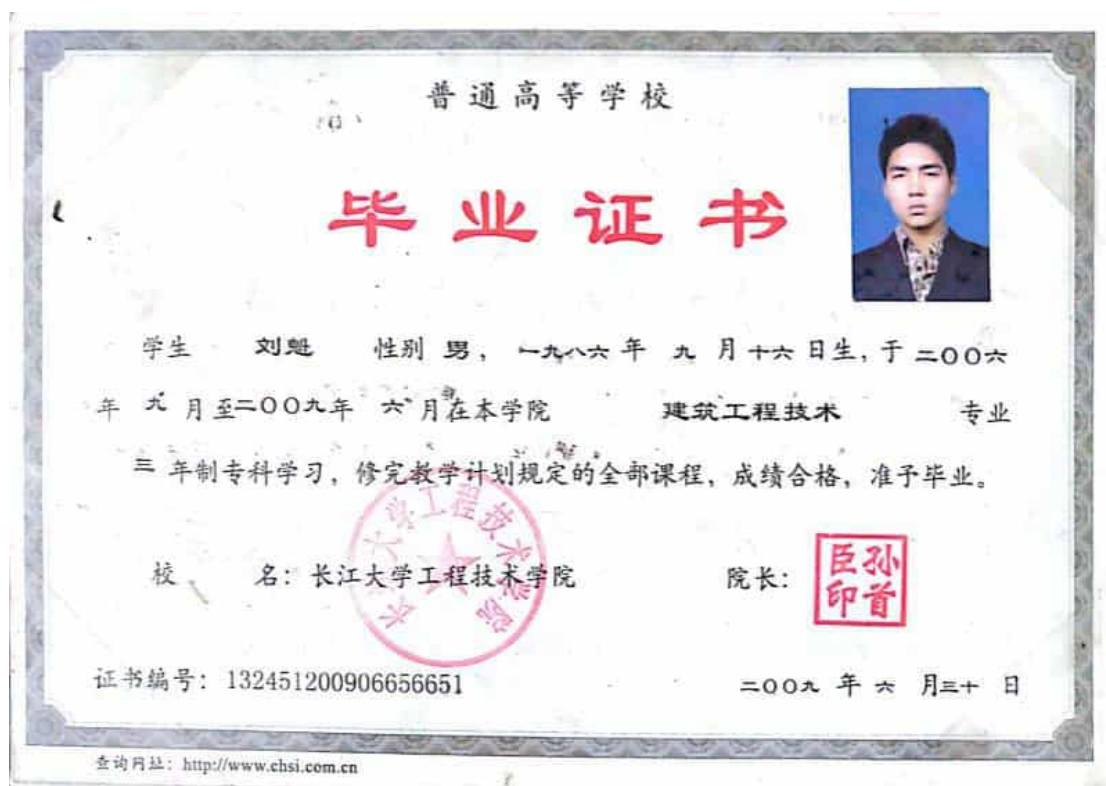 普通高等学校
毕业证书
学生 刘魁 性别 男，一九八六年 九 月十六日生，于二〇〇六
年 九 月至二〇〇九年 六 月在本学院 建筑工程技术 专业
三 年制专科学习，修完教学计划规定的全部课程，成绩合格，准予毕业。
长江大学工程技术学院
校 名：长江大学工程技术学院 院长：
孙首臣印
证书编号：132451200906656651 二〇〇九 年 六 月三十 日
查询网址：http://www.chsi.com.cn